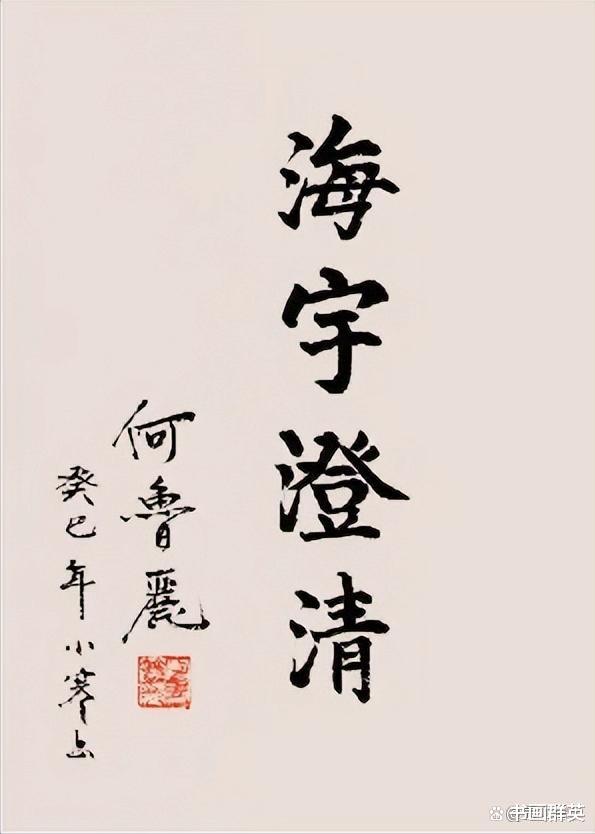 海宇澄清
何鲁麗
癸巳年小寒
书画群英